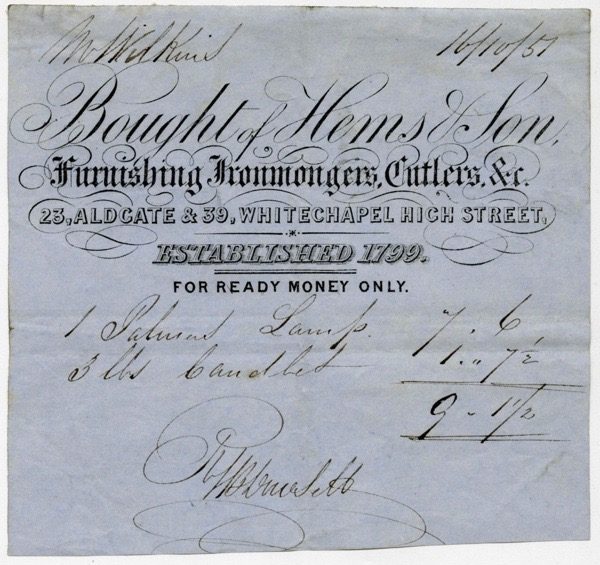 Mr Wilkins 16/10/57
Bought of Hems & Son,
Furnishing Ironmongers, Cutlers, &c.
23, ALDGATE & 39, WHITECHAPEL HIGH STREET,
ESTABLISHED 1799.
FOR READY MONEY ONLY.
1 Palmers Lamp. 7. 6,
3 lbs Candles 1 " 7½
9 - 1½